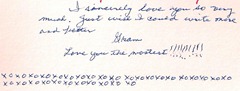 I sincerely love you so very
much. Just wish I could write more
and better
Gram
Love you the mostest!!!!!!!
xoxoxoxoxoxoxoxoxoxoxoxoxoxoxoxoxoxoxo
xoxoxoxoxoxoxoxoxoxoxoxo xo